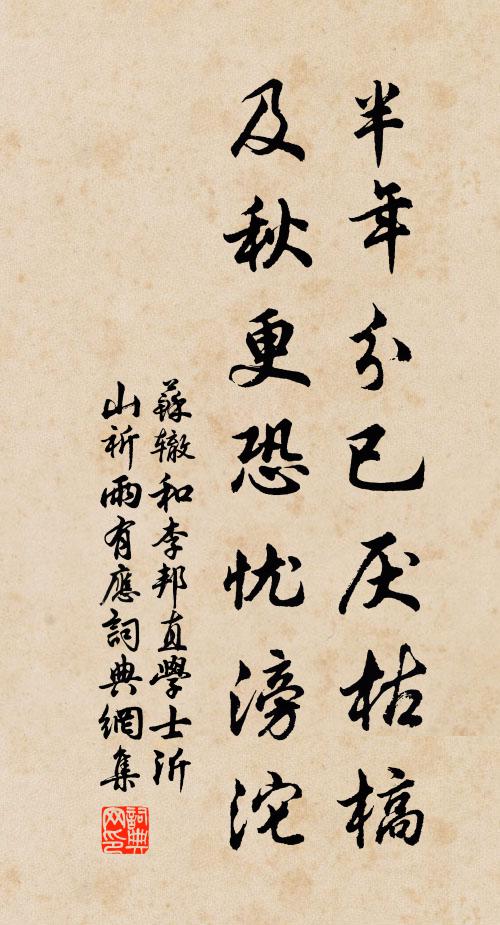 半年分已厌枯槁
及秋更恐忧滂沱
蘇辙和李邦直學士沂
山祈雨有應詞典網集
詞典
网印